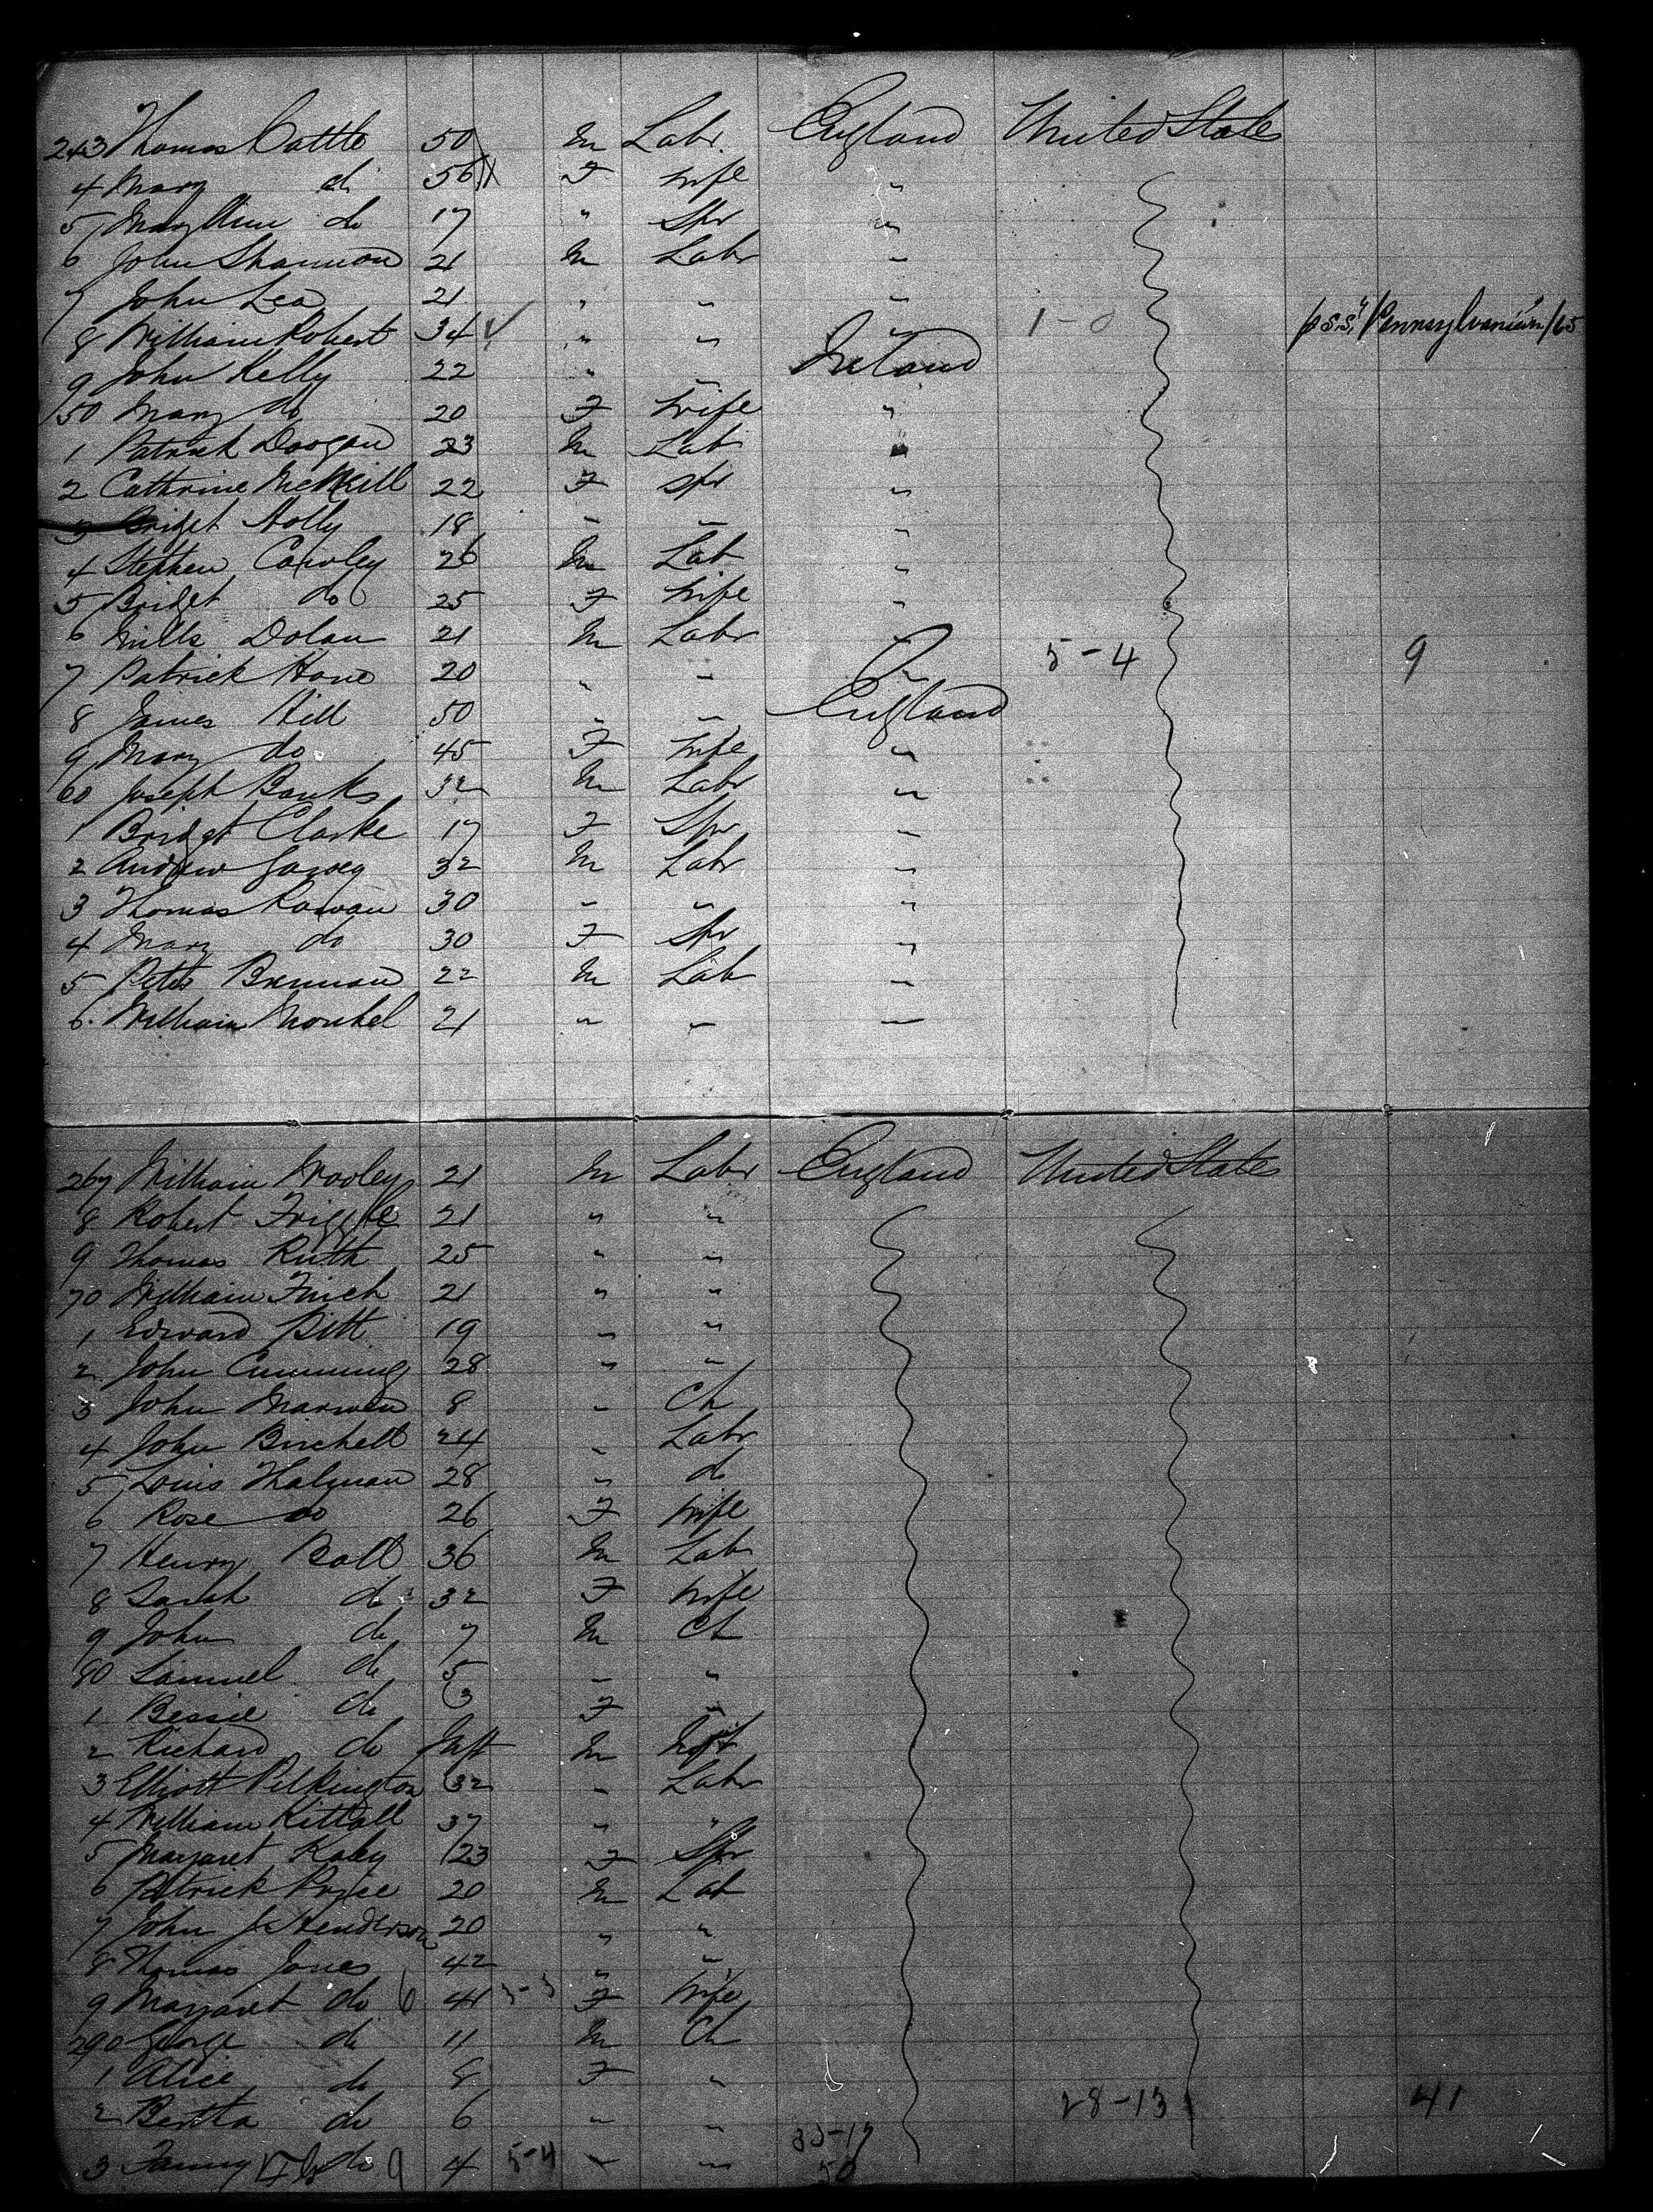 243 Thomas Cattle 50 M Labr. England United States
4 Mary do 56 F wife "
5 Mary Ann do 17 " Spr "
6 John Shannon 21 M Labr "
7 John Lea 21 " " "
8 William Robert 34 ✓ " " " 1-0 p S.S. "Pennsylvanian"/65
9 John Kelly 22 " " Ireland
50 Mary do 20 F wife "
1 Patrick Doogan 23 M Lab "
2 Cathrine McNeill 22 F Spr "
3 Bridget Holly 18 " " "
4 Stephen Cawley 26 M Lab "
5 Bridget do 25 F wife "
6 Mills Dolan 21 M Labr "
7 Patrick Hane 20 " " " 5-4 9
8 James Hill 50 " " England
9 Mary do 45 F wife "
60 Joseph Banks 32 M Labr "
1 Bridget Clarke 17 F Spr "
2 Andrew Garvey 32 M Labr "
3 Thomas Rowan 30 " " "
4 Mary do 30 F Spr "
5 Peter Brennan 22 M Lab "
6. William 21 " " "
267 William Wooley 21 M Labr England United States
8 Robert 21 " "
9 Thomas Ruth 25 " "
70 William Finch 21 " "
1 Edward Pitt 19 " "
2 John Cumming 28 " "
3 John 8 " Ch
4 John Birchell 24 " Labr
5 Louis Thalman 28 " do
6 Rose do 26 F wife
7 Henry Ball 36 M Lab
8 Sarah do 32 F wife
9 John do 7 M Ch
80 Samuel do 5 " "
1 Bessie do 3 F "
2 Richard do Inft M Inft
3 Elliott Pilkington 32 " Labr
4 William Kittall 37 " "
5 Margaret Kaley 23 F Spr
6 Patrick Price 20 M Lab
7 John J Henderson 20 " "
8 Thomas Jones 42 " "
9 Margaret do 6 41 3-3 F wife
290 George do 11 M Ch
1 Alice do 8 F "
2 Bertha do 6 " " 28-13 41
3 Fanny do 9 4 5-4 " " 33-17
50